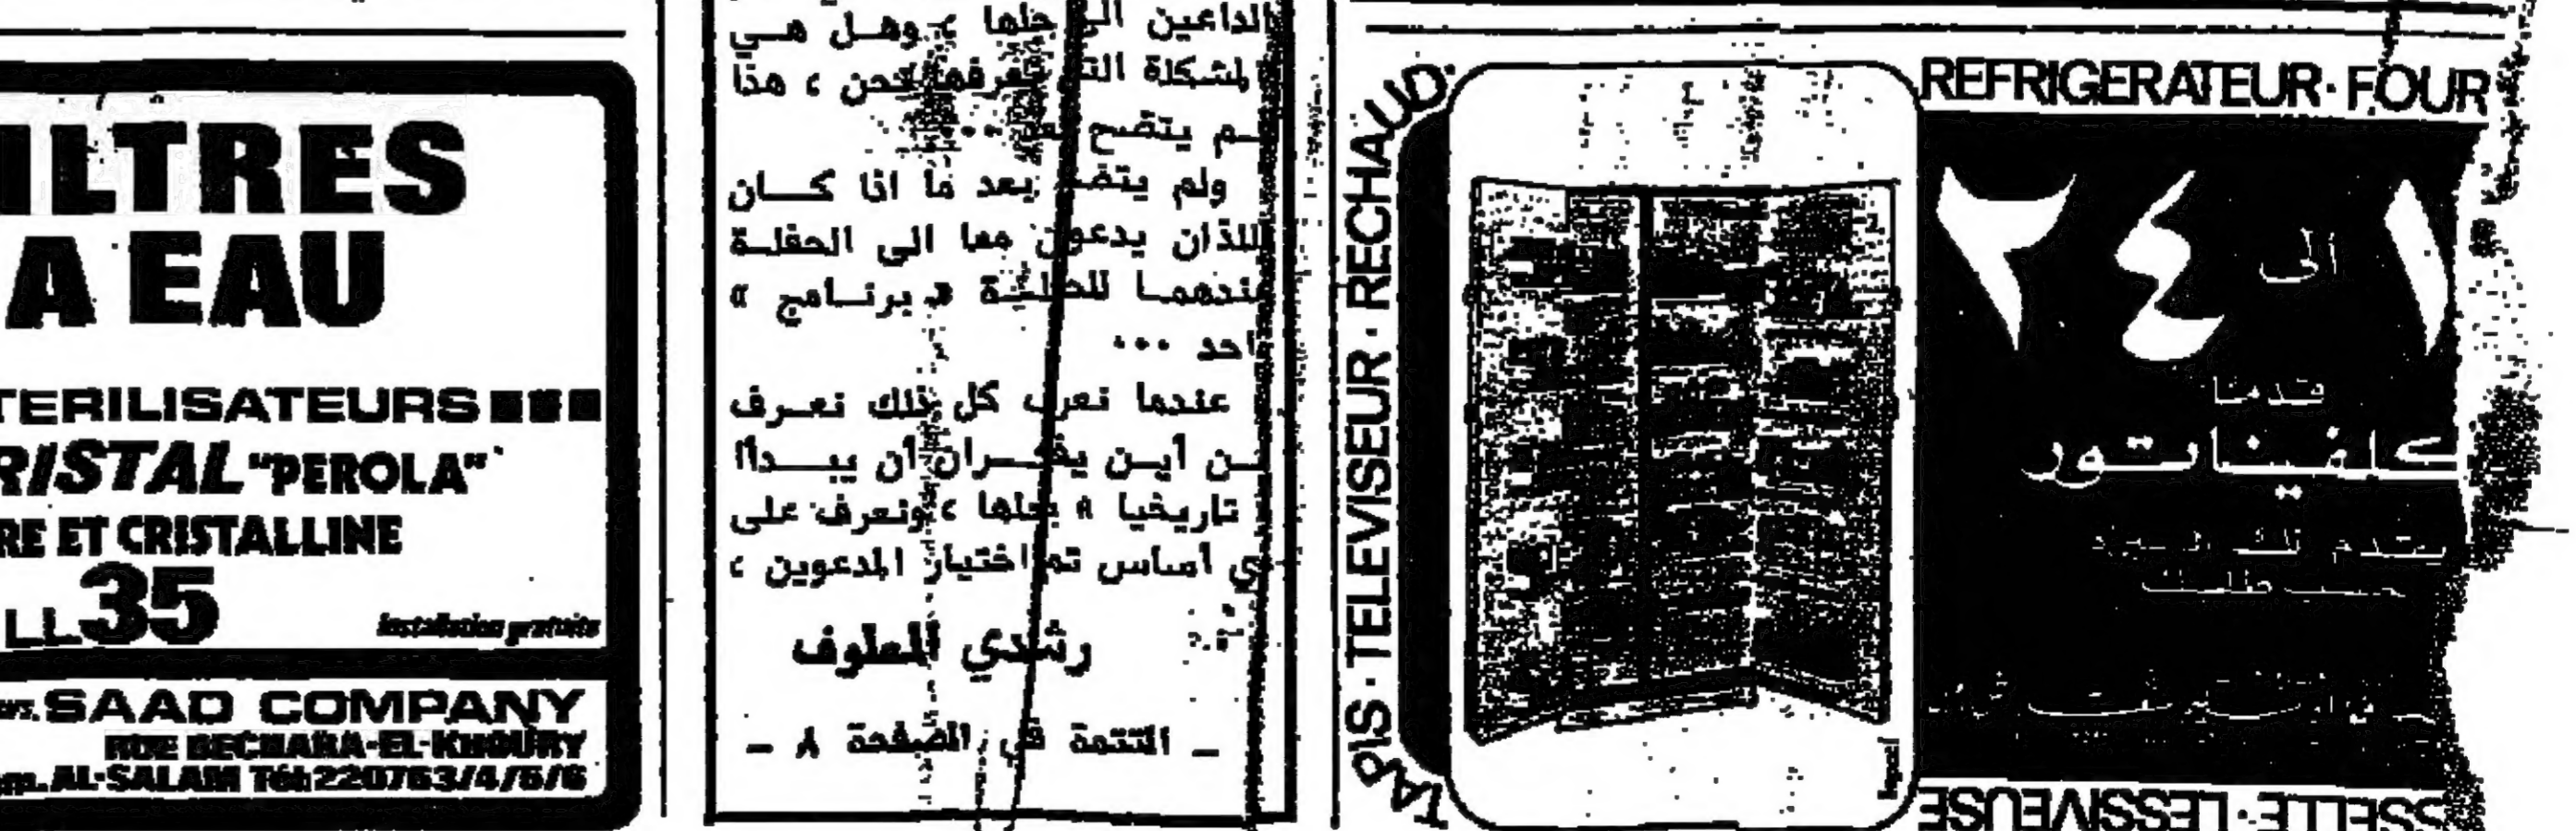 ILTRES
A EAU
TERILISATEURS
RISTAL "PEROLA"
RE ET CRISTALLINE
LL 35
installation gratuite
SAAD COMPANY
RUE BECHARA-EL-KHOURY
AL-SALAM Tél: 220763/4/5/6
الداعين الى حلها ، وهل هي
لمشكلة التي نعرفها نحن ، هذا
ـم يتضح بعد ...
ولم يتضح بعد ما اذا كــان
للذان يدعون معا الى الحفلـة
ـندهمـا للحفلـة « برنـامج »
احد ...
عندما نعرف كل ذلك نعـرف
ـن أيـن يفكـران أن يبــدأا
تاريخيا » بحلها ، ونعرف على
ي أساس تم اختيار المدعوين ،
رشدي المعلوف
ـ التتمة في الصفحة ٨ ـ
TAPIS · TELEVISEUR · RECHAUD ·
REFRIGERATEUR · FOUR
١ الى ٢٤
قدما
كلفيناتور
SSELLE · LESSIVEUSE